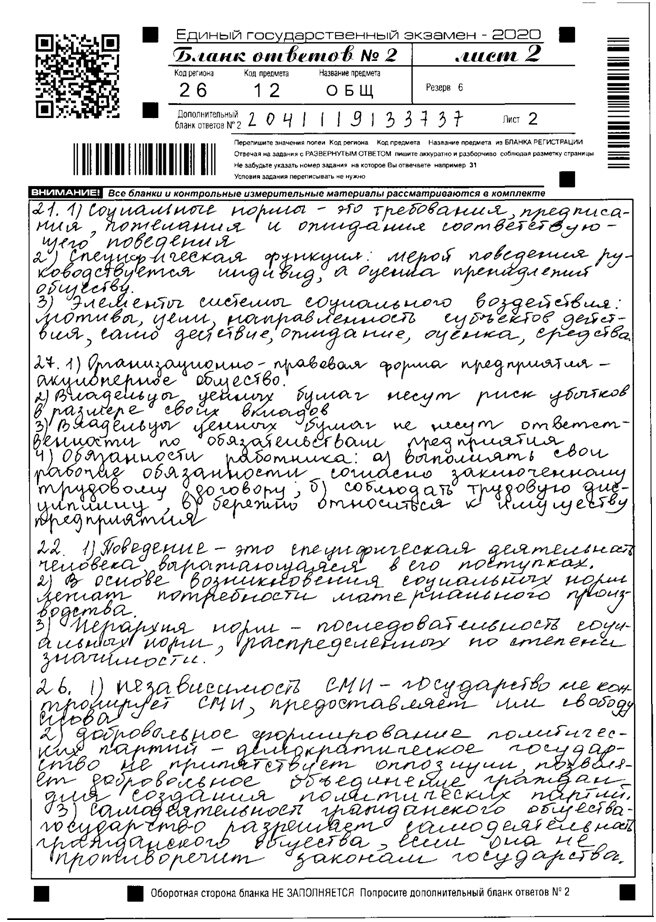 Единый государственный экзамен - 2020
Бланк ответов № 2 лист 2
Код региона Код предмета Название предмета
26 12 ОБЩ Резерв 6
Дополнительный
бланк ответов № 2 2041119133737 Лист 2
Перепишите значения полей Код региона Код предмета Название предмета из БЛАНКА РЕГИСТРАЦИИ
Отвечая на задания с РАЗВЕРНУТЫМ ОТВЕТОМ пишите аккуратно и разборчиво соблюдая разметку страницы
Не забудьте указать номер задания на которое Вы отвечаете например 31
Условия задания переписывать не нужно
ВНИМАНИЕ! Все бланки и контрольные измерительные материалы рассматриваются в комплекте
21. 1) Социальные нормы - это требования, предписа-
ния, пожелания и ожидания соответствую-
щего поведения
2) Специфическая функция: мерой поведения ру-
ководствуется индивид, а оценка принадлежит
обществу.
3) Элементы системы социального воздействия:
мотивы, цели, направленность субъектов дейст-
вия, само действие, ожидание, оценка, средства
27. 1) Организационно-правовая форма предприятия -
акционерное общество.
2) Владельцы ценных бумаг несут риск убытков
в размере своих вкладов
3) Владельцы ценных бумаг не несут ответст-
венности по обязательствам предприятия
4) Обязанности работника: а) выполнять свои
рабочие обязанности согласно заключенному
трудовому договору; б) соблюдать трудовую дис-
циплину, в) бережно относиться к имуществу
предприятия
22. 1) Поведение - это специфическая деятельность
человека выражающаяся в его поступках.
2) В основе возникновения социальных норм
лежат потребности материального произ-
водства.
3) Иерархия норм - последовательность соци-
альных норм, распределенных по степени
значимости.
26. 1) Независимость СМИ - государство не кон-
тролирует СМИ, предоставляет им свободу
слова
2) добровольное формирование политичес-
ких партий - демократическое государ-
ство не припятствует оппозиции, позволя-
ет добровольное объединение граждан
для создания политических партий.
3) Самодеятельность гражданского общества-
государство разрешает самодеятельность
гражданского общества, если она не
противоречит законам государства.
Оборотная сторона бланка НЕ ЗАПОЛНЯЕТСЯ Попросите дополнительный бланк ответов № 2